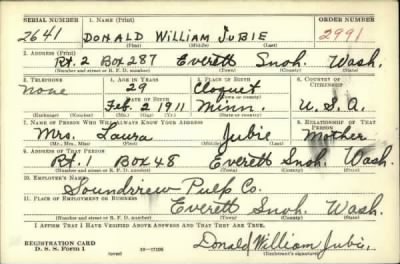 SERIAL NUMBER 1. NAME (Print) ORDER NUMBER
2641 DONALD WILLIAM JUBIE 2991
(First) (Middle) (Last)
2. ADDRESS (Print)
Rt. 2 Box 287 Everett Snoh. Wash.
(Number and street or R. F. D. number) (Town) (County) (State)
3. TELEPHONE 4. AGE IN YEARS 5. PLACE OF BIRTH 6. COUNTRY OF CITIZENSHIP
none 29 Cloquet
DATE OF BIRTH (Town or county)
Feb. 2 1911 Minn. U.S.A.
(Mo.) (Day) (Yr.) (State or country)
7. NAME OF PERSON WHO WILL ALWAYS KNOW YOUR ADDRESS 8. RELATIONSHIP OF THAT PERSON
Mrs. Laura Jubie Mother
(Mr., Mrs., Miss) (First) (Middle) (Last)
9. ADDRESS OF THAT PERSON
Rt. 1 Box 48 Everett Snoh. Wash.
(Number and street or R. F. D. number) (Town) (County) (State)
10. EMPLOYER'S NAME
Soundview Pulp Co.
11. PLACE OF EMPLOYMENT OR BUSINESS
Everett Snoh. Wash.
(Number and street or R. F. D. number) (Town) (County) (State)
I AFFIRM THAT I HAVE VERIFIED ABOVE ANSWERS AND THAT THEY ARE TRUE.
REGISTRATION CARD
D. S. S. Form 1 Donald William Jubie
(over) (Registrant's signature)